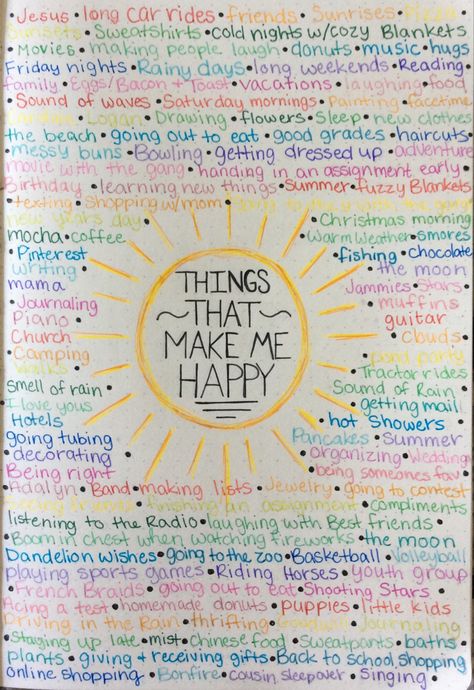 • Jesus • long car rides • friends • Sunrises • Pizza
Sunsets • Sweatshirts • cold nights w/cozy Blankets
• Movies • making people laugh • donuts • music • hugs
Friday nights • Rainy days • long weekends • Reading •
family • Eggs/Bacon + Toast • vacations • laughing • food
• Sound of waves • Saturday mornings • Painting • facetime
Logan • Drawing • flowers • Sleep • new clothes
the beach • going out to eat • good grades • haircuts •
• messy buns • Bowling • getting dressed up • adventure
movie with the gang • handing in an assignment early •
Birthday • learning new things • Summer • fuzzy Blankets
• texting • Shopping w/mom •
new years day
• Christmas morning
mocha • coffee
• Warm Weather • smores
• Pinterest
• fishing • chocolate
writing
the moon
mama
Jammies • Stars
• Journaling
• muffins
Piano
guitar
Church
clouds
• Camping
pond party
walks
Tractor rides
smell of rain
Sound of Rain
I love yous
• getting mail
Hotels
• hot Showers
going tubing
Pancakes • Summer
• decorating
• organizing • Weddings
Being right
• being someones fav
• Adalyn • Band • making lists • Jewelry • going to contest
finishing an assignment • compliments
listening to the Radio • laughing with Best friends •
• Boom in chest when watching fireworks • the moon
Dandelion wishes • going to the zoo • Basketball • Volleyball
playing sports games • Riding Horses • youth group
• French Braids • going out to eat • Shooting Stars •
Acing a test • homemade donuts • puppies • little kids
Driving in the Rain • thrifting • Goodwill • Journaling
• Staying up late • mist • Chinese food • sweatpants • baths
plants • giving + receiving gifts • Back to school shopping
online shopping • Bonfire • cousin sleepover • Singing •
THINGS
~ THAT ~
MAKE ME
HAPPY